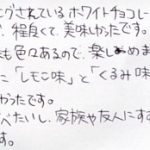 ングされているホワイトチョコレー
で、程良くて、美味しかったです。
も色々あるので、楽しめま
に「レモン味」と「くるみ味
かったです。
べたいし、家族や友人にす
す。